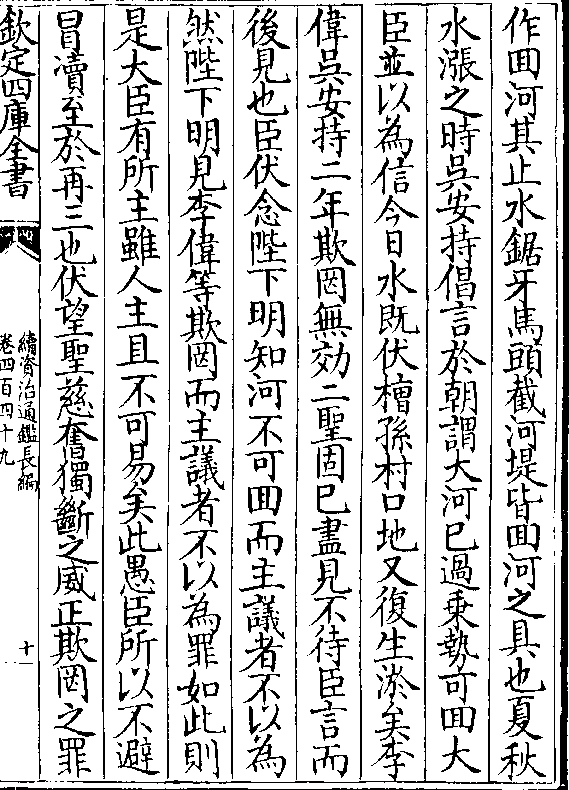 作回河其止水鋸牙馬頭截河堤皆回河之具也夏秋
水漲之時吳安持倡言於朝謂大河已過乗勢可回大
臣並以為信今日水既伏檜孫村口地又復生淤矣李
偉吳安持二年欺罔無効二聖固已盡見不待臣言而
後見也臣伏念陛下明知河不可回而主議者不以為
然陛下明見李偉等欺罔而主議者不以為罪如此則
是大臣有所主雖人主且不可易矣此愚臣所以不避
冒瀆至於再三也伏望聖慈奮獨斷之威正欺罔之罪
欽定四庫全書
續資治通鑑長編
卷四百四十九
十一